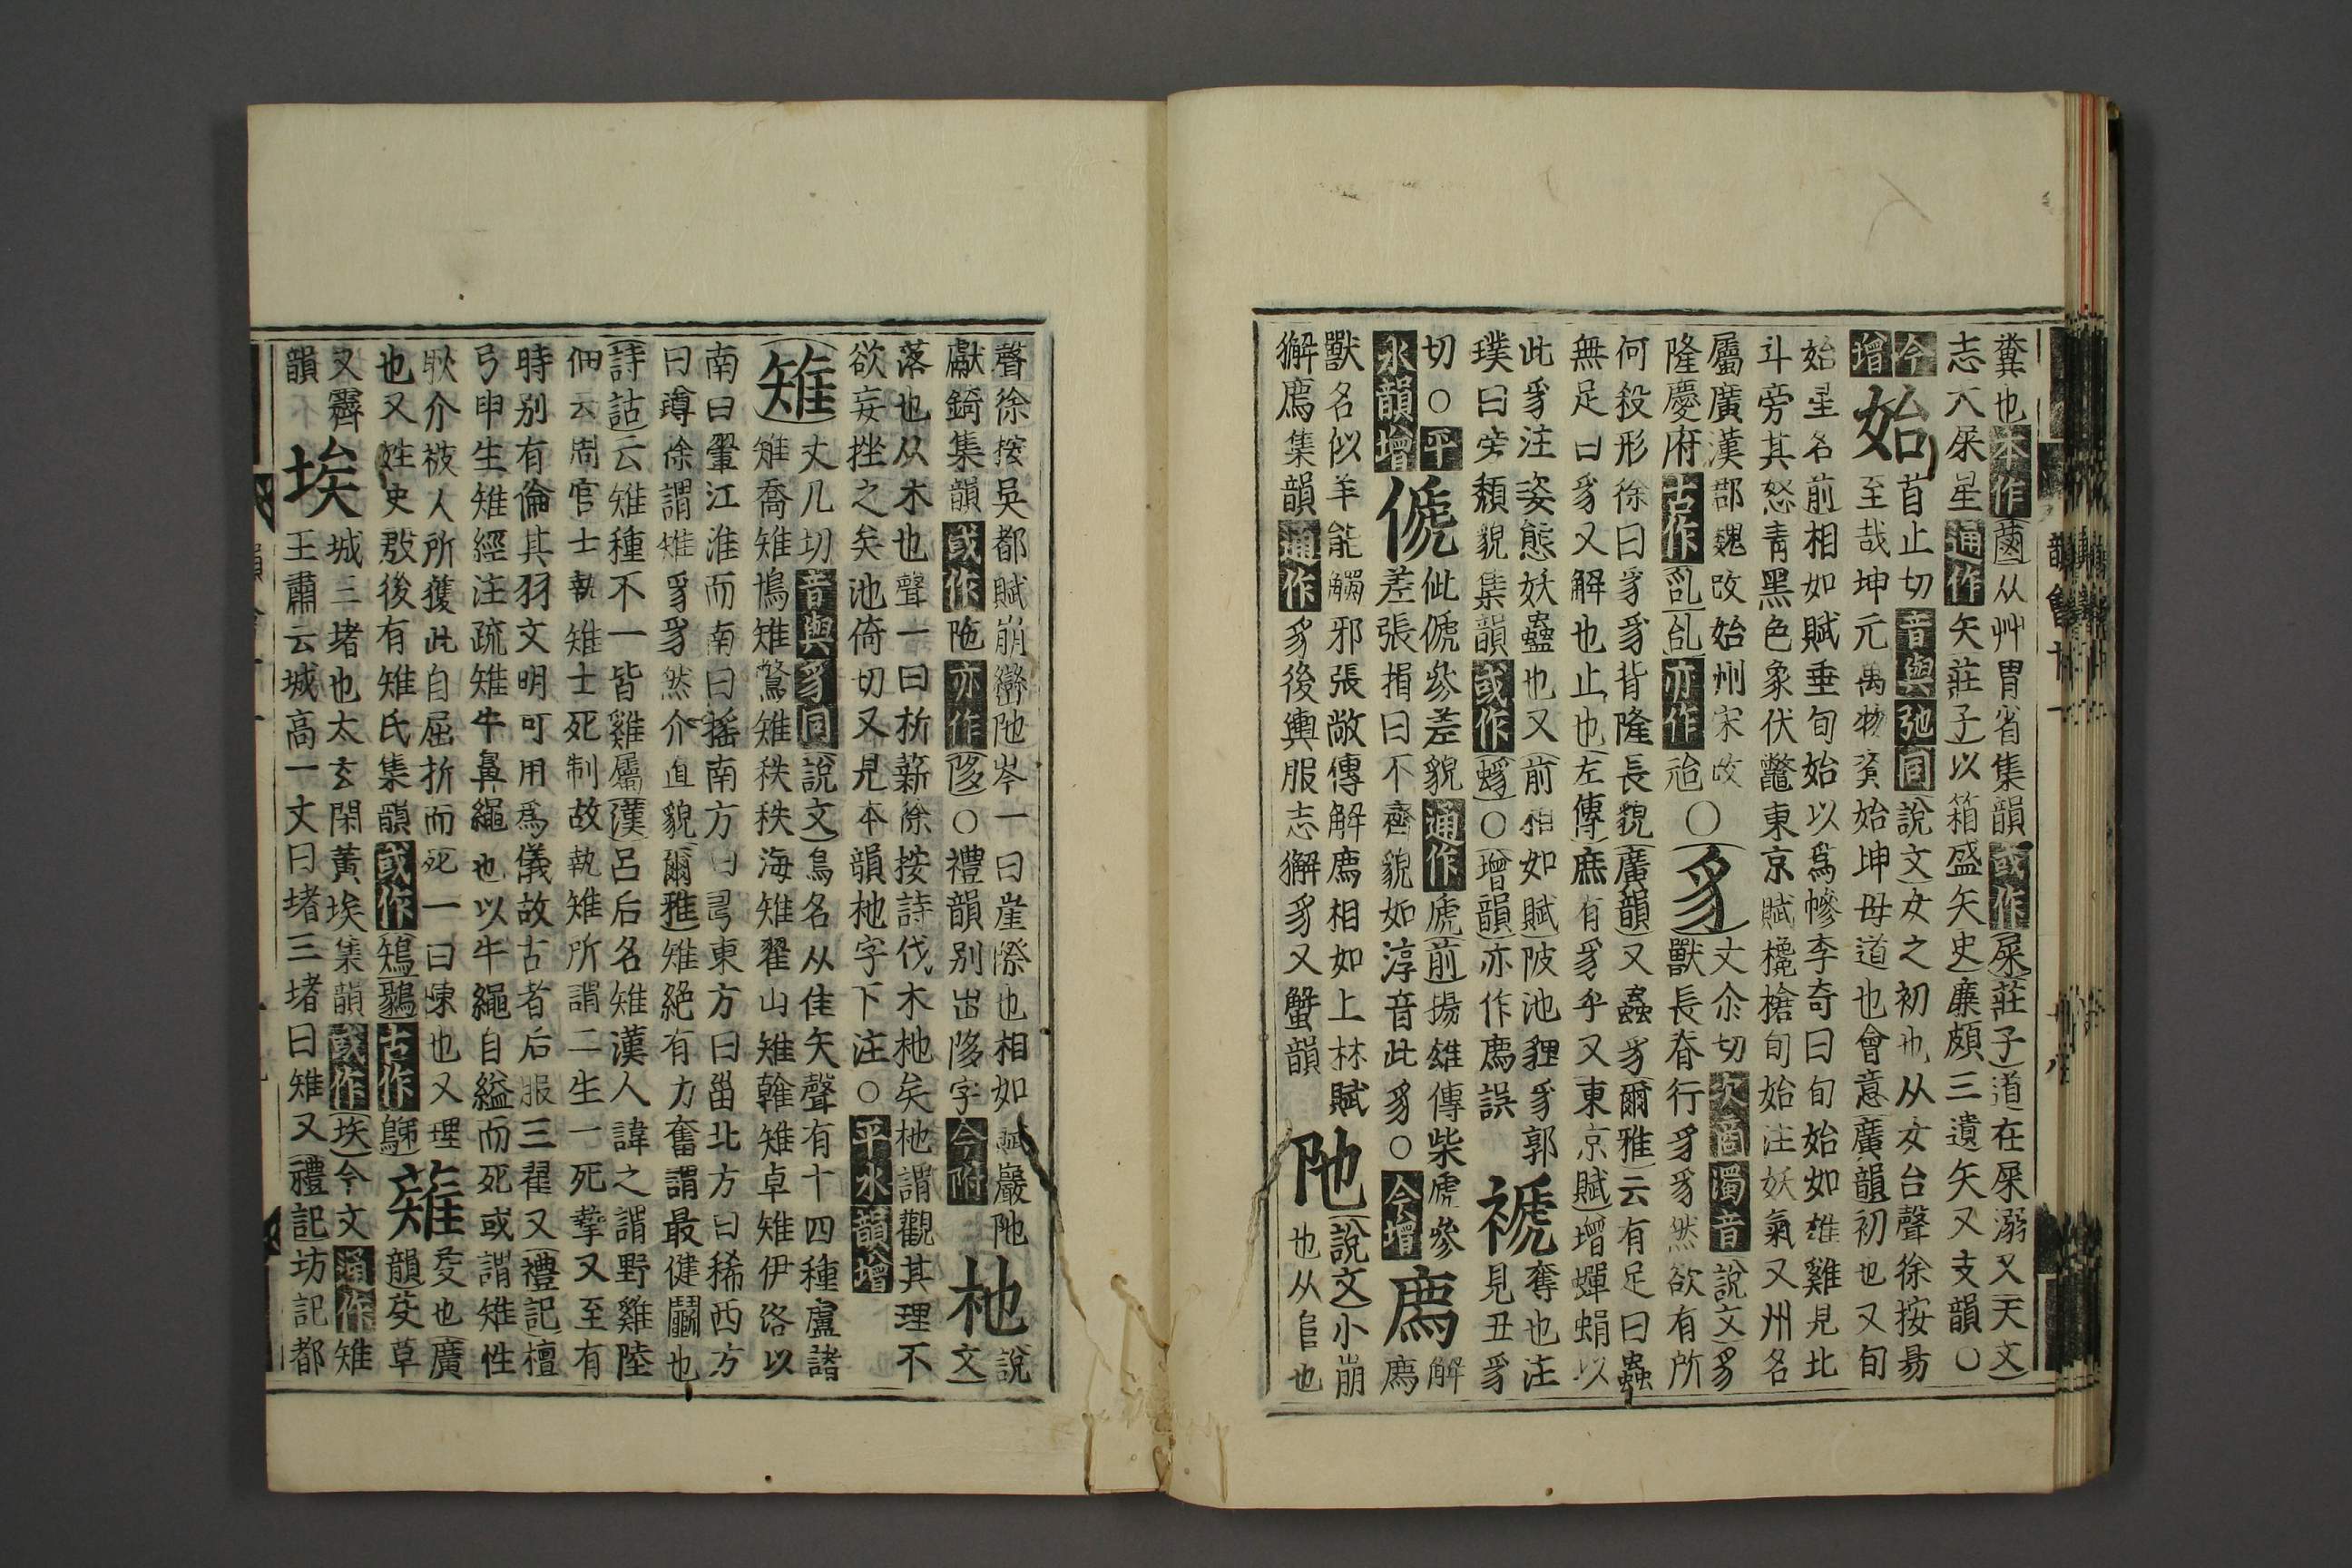 糞也本作𦳊从艸胃省集韻或作屎莊子道在屎溺又天文
志大屎星通作矢莊子以箱盛矢史廉頗三遺矢又支韻○
今增
始
首止切音與弛同說文女之初也从女台聲徐按易
至哉坤元萬物資始坤母道也會意廣韻初也又旬
始星名前相如賦垂旬始以爲幓李奇曰旬始如雄雞見北
斗旁其怒青黑色象伏鼈東京賦欃槍旬始注妖氣又州名
屬廣漢郡魏改始州宋改
隆慶府古作乨𠙊亦作䄔○
豸
丈尒切次商濁音說文豸
獸長脊行豸豸然欲有所
何殺形徐曰豸豸背隆長貌廣韻又蟲豸爾雅云有足曰蟲
無足曰豸又解也止也左傳庶有豸乎又東京賦增蟬蜎以
此豸注姿態妖蠱也又前相如賦陂池貏豸郭
璞曰旁頹貌集韻或作𧋒○增韻亦作廌誤
褫
奪也注
見丑豸
切○平
水韻增
傂
佌傂參差貌通作虒前揚雄傳柴虒參
差張揖曰不齊貌如淳音此豸○今增
廌
解
廌
獸名似羊能觸邪張敞傳解廌相如上林賦
獬廌集韻通作豸後輿服志獬豸又蟹韻
阤
說文小崩
也从𨸏也
聲徐按吳都賦崩巒阤岑一曰崖際也相如賦巖阤
甗錡集韻或作陁亦作陊○禮韻別出陊字今附
杝
說
文
落也从木也聲一曰析薪徐按詩伐木杝矣杝謂觀其理不
欲妄挫之矣池倚切又見本韻杝字下注○平水韻增
雉
丈几切音與豸同說文鳥名从隹矢聲有十四種盧諸
雉喬雉鳪雉鷩雉秩秩海雉翟山雉雗雉卓雉伊洛以
南曰翬江淮而南曰搖南方曰𢏚東方曰甾北方曰稀西方
曰蹲徐謂雉豸豸然介直貌爾雅雉絕有力奮謂最健鬭也
詩詁云雉種不一皆雞屬漢呂后名雉漢人諱之謂野雞陸
佃云周官士執雉士死制故執雉所謂二生一死摯又至有
時別有倫其羽文明可用爲儀故古者后服三翟又禮記檀
弓申生雉經注疏雉牛鼻繩也以牛繩自縊而死或謂雉性
耿介被人所獲此自屈折而死一曰陳也又理
也又姓史殷後有雉氏集韻或作鴙鷞古作𩿨
薙
芟也廣
韻芟草
又霽
韻
埃
城三堵也太玄閑黃埃集韻或作㙪今文通作雉
王肅云城高一丈曰堵三堵曰雉又禮記坊記都
韻會十一